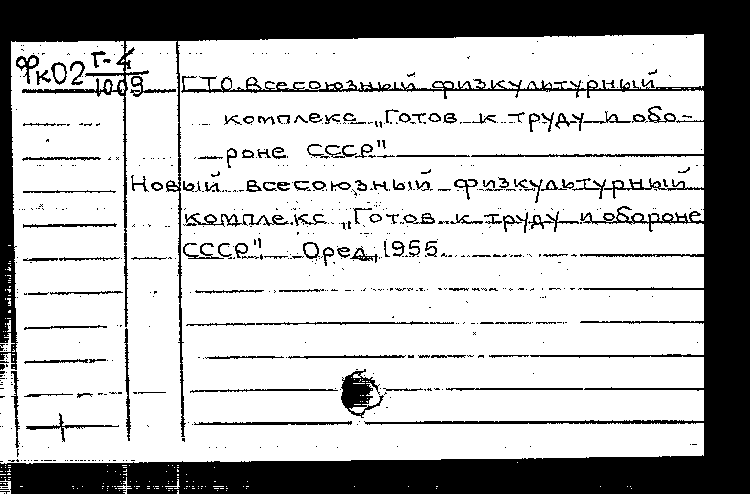 Фк02 Г-4
1009
ГТО. Всесоюзный физкультурный
комплекс „Готов к труду и обо-
роне СССР"
Новый всесоюзный физкультурный
комплекс „Готов к труду и обороне
СССР". Орел, 1955.